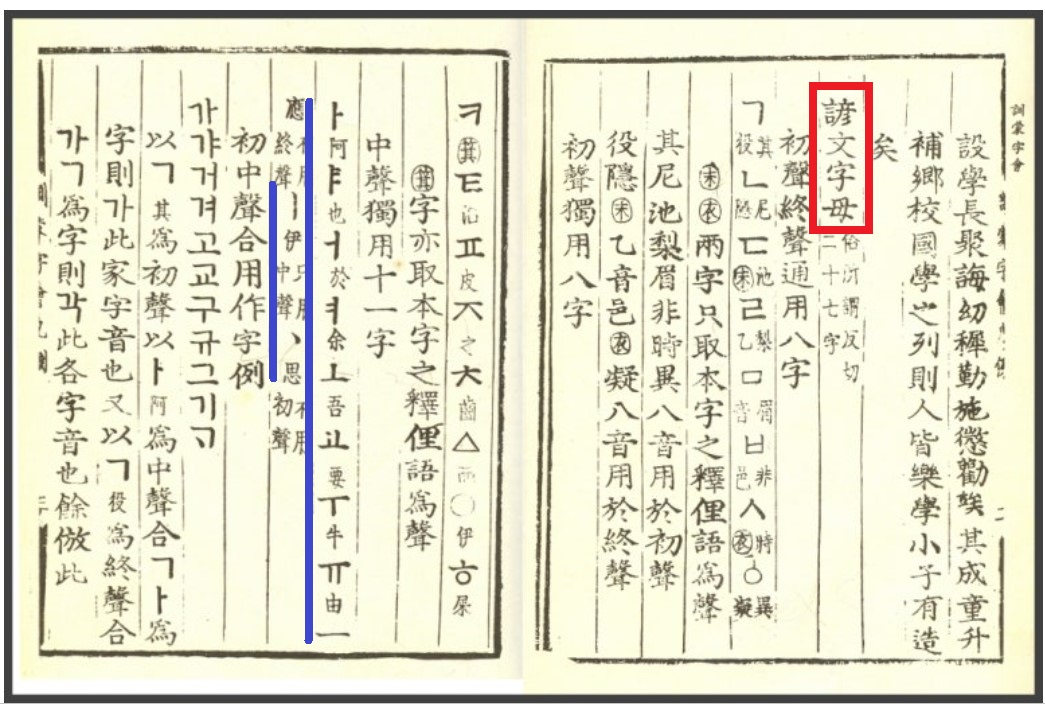 訓蒙字會
設學長聚誨幼穉勤施懲勸竢其成童升
補鄉校國學之列則人皆樂學小子有造
矣
諺文字母俗所謂反切二十七字
初聲終聲通用八字
ㄱ其役ㄴ尼隱ㄷ池末ㄹ梨乙ㅁ眉音ㅂ非邑ㅅ時衣ㆁ異凝
末衣兩字只取本字之釋俚語爲聲
其尼池梨眉非時異八音用於初聲
役隱末乙音邑衣凝八音用於終聲
初聲獨用八字
ㅋ箕ㅌ治ㅍ皮ㅈ之ㅊ齒ㅿ而ㅇ伊ㅎ屎
箕字亦取本字之釋俚語爲聲
中聲獨用十一字
ㅏ阿ㅑ也ㅓ於ㅕ余ㅗ吾ㅛ要ㅜ牛ㅠ由ㅡ
應不用終聲ㅣ伊只用中聲ㆍ思不用初聲
初中聲合用作字例
가갸거겨고교구규그기ᄀᆞ
以ㄱ其爲初聲以ㅏ阿爲中聲合ㄱㅏ爲
字則가此家字音也又以ㄱ役爲終聲合
가ㄱ爲字則각此各字音也餘倣此